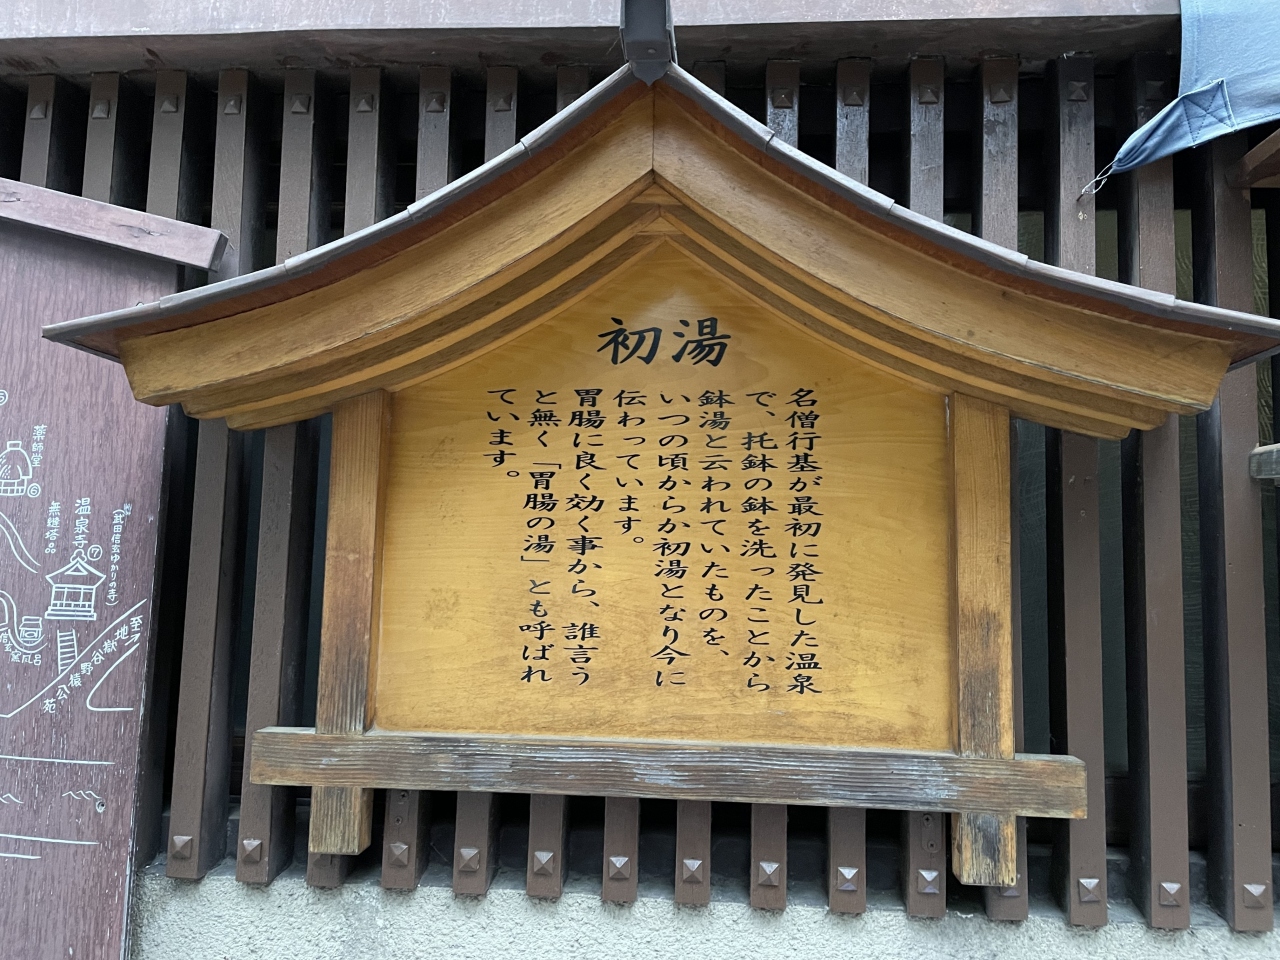 初湯
名僧行基が最初に発見した温泉
で、托鉢の鉢を洗ったことから
鉢湯と云われていたものを、
いつの頃からか初湯となり今に
伝わっています。
胃腸に良く効く事から、誰言う
と無く「胃腸の湯」とも呼ばれ
ています。
薬師堂
⑥
(武田信玄ゆかりの寺)
温泉寺
⑦
無縫塔
至
地獄谷野猿公苑